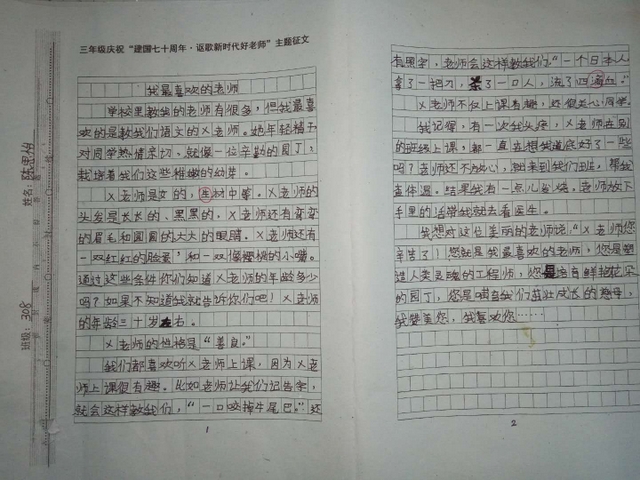 三年级庆祝“建国七十周年·讴歌新时代好老师”主题征文
我最喜欢的老师
学校里教我的老师有很多,但我最喜
欢的是教我们语文的X老师。她年轻精干
对同学热情亲切、就像一位辛勤的园丁,
栽培着我们这些稚嫩的幼芽。
X老师是女的,身材中等。X老师的
头发是长长的、黑黑的,X老师还有弯弯
的眉毛和圆圆的大大的眼睛。X老师还有
一双红红的脸蛋,和一双像樱桃的小嘴。
通过这些条件你们知道X老师的年龄多少
吗?如果不知道我就告诉你们吧!X老师
的年龄三十岁左右。
X老师的性格是“善良”。
我们都喜欢听X老师上课,因为X老
师上课很有趣。比如老师让我们记告字,
就会这样教我们,“一口咬掉牛尾巴。”还
1
有照字,老师会这样教我们“一个日本人
拿了一把刀,杀了一口人,流了四滴血。”
X老师不仅上课有趣,还很关心同学。
我记得,有一次我头疼,X老师在别
的班级上课,都一直在想我道底好了一些
吗?老师还不放心,就来到我们班,帮我
查体温。结果我有一点儿发烧。老师放下
手里的活带我就去看医生。
我想对这位美丽的老师说:“X老师您
辛苦了!您就是我最喜欢的老师,您是塑
造人类灵魂的工程师,您是培育鲜艳花朵
的园丁,您是哺育我们茁壮成长的慈母,
我赞美您,我喜欢您……
2
姓名:
班级:308